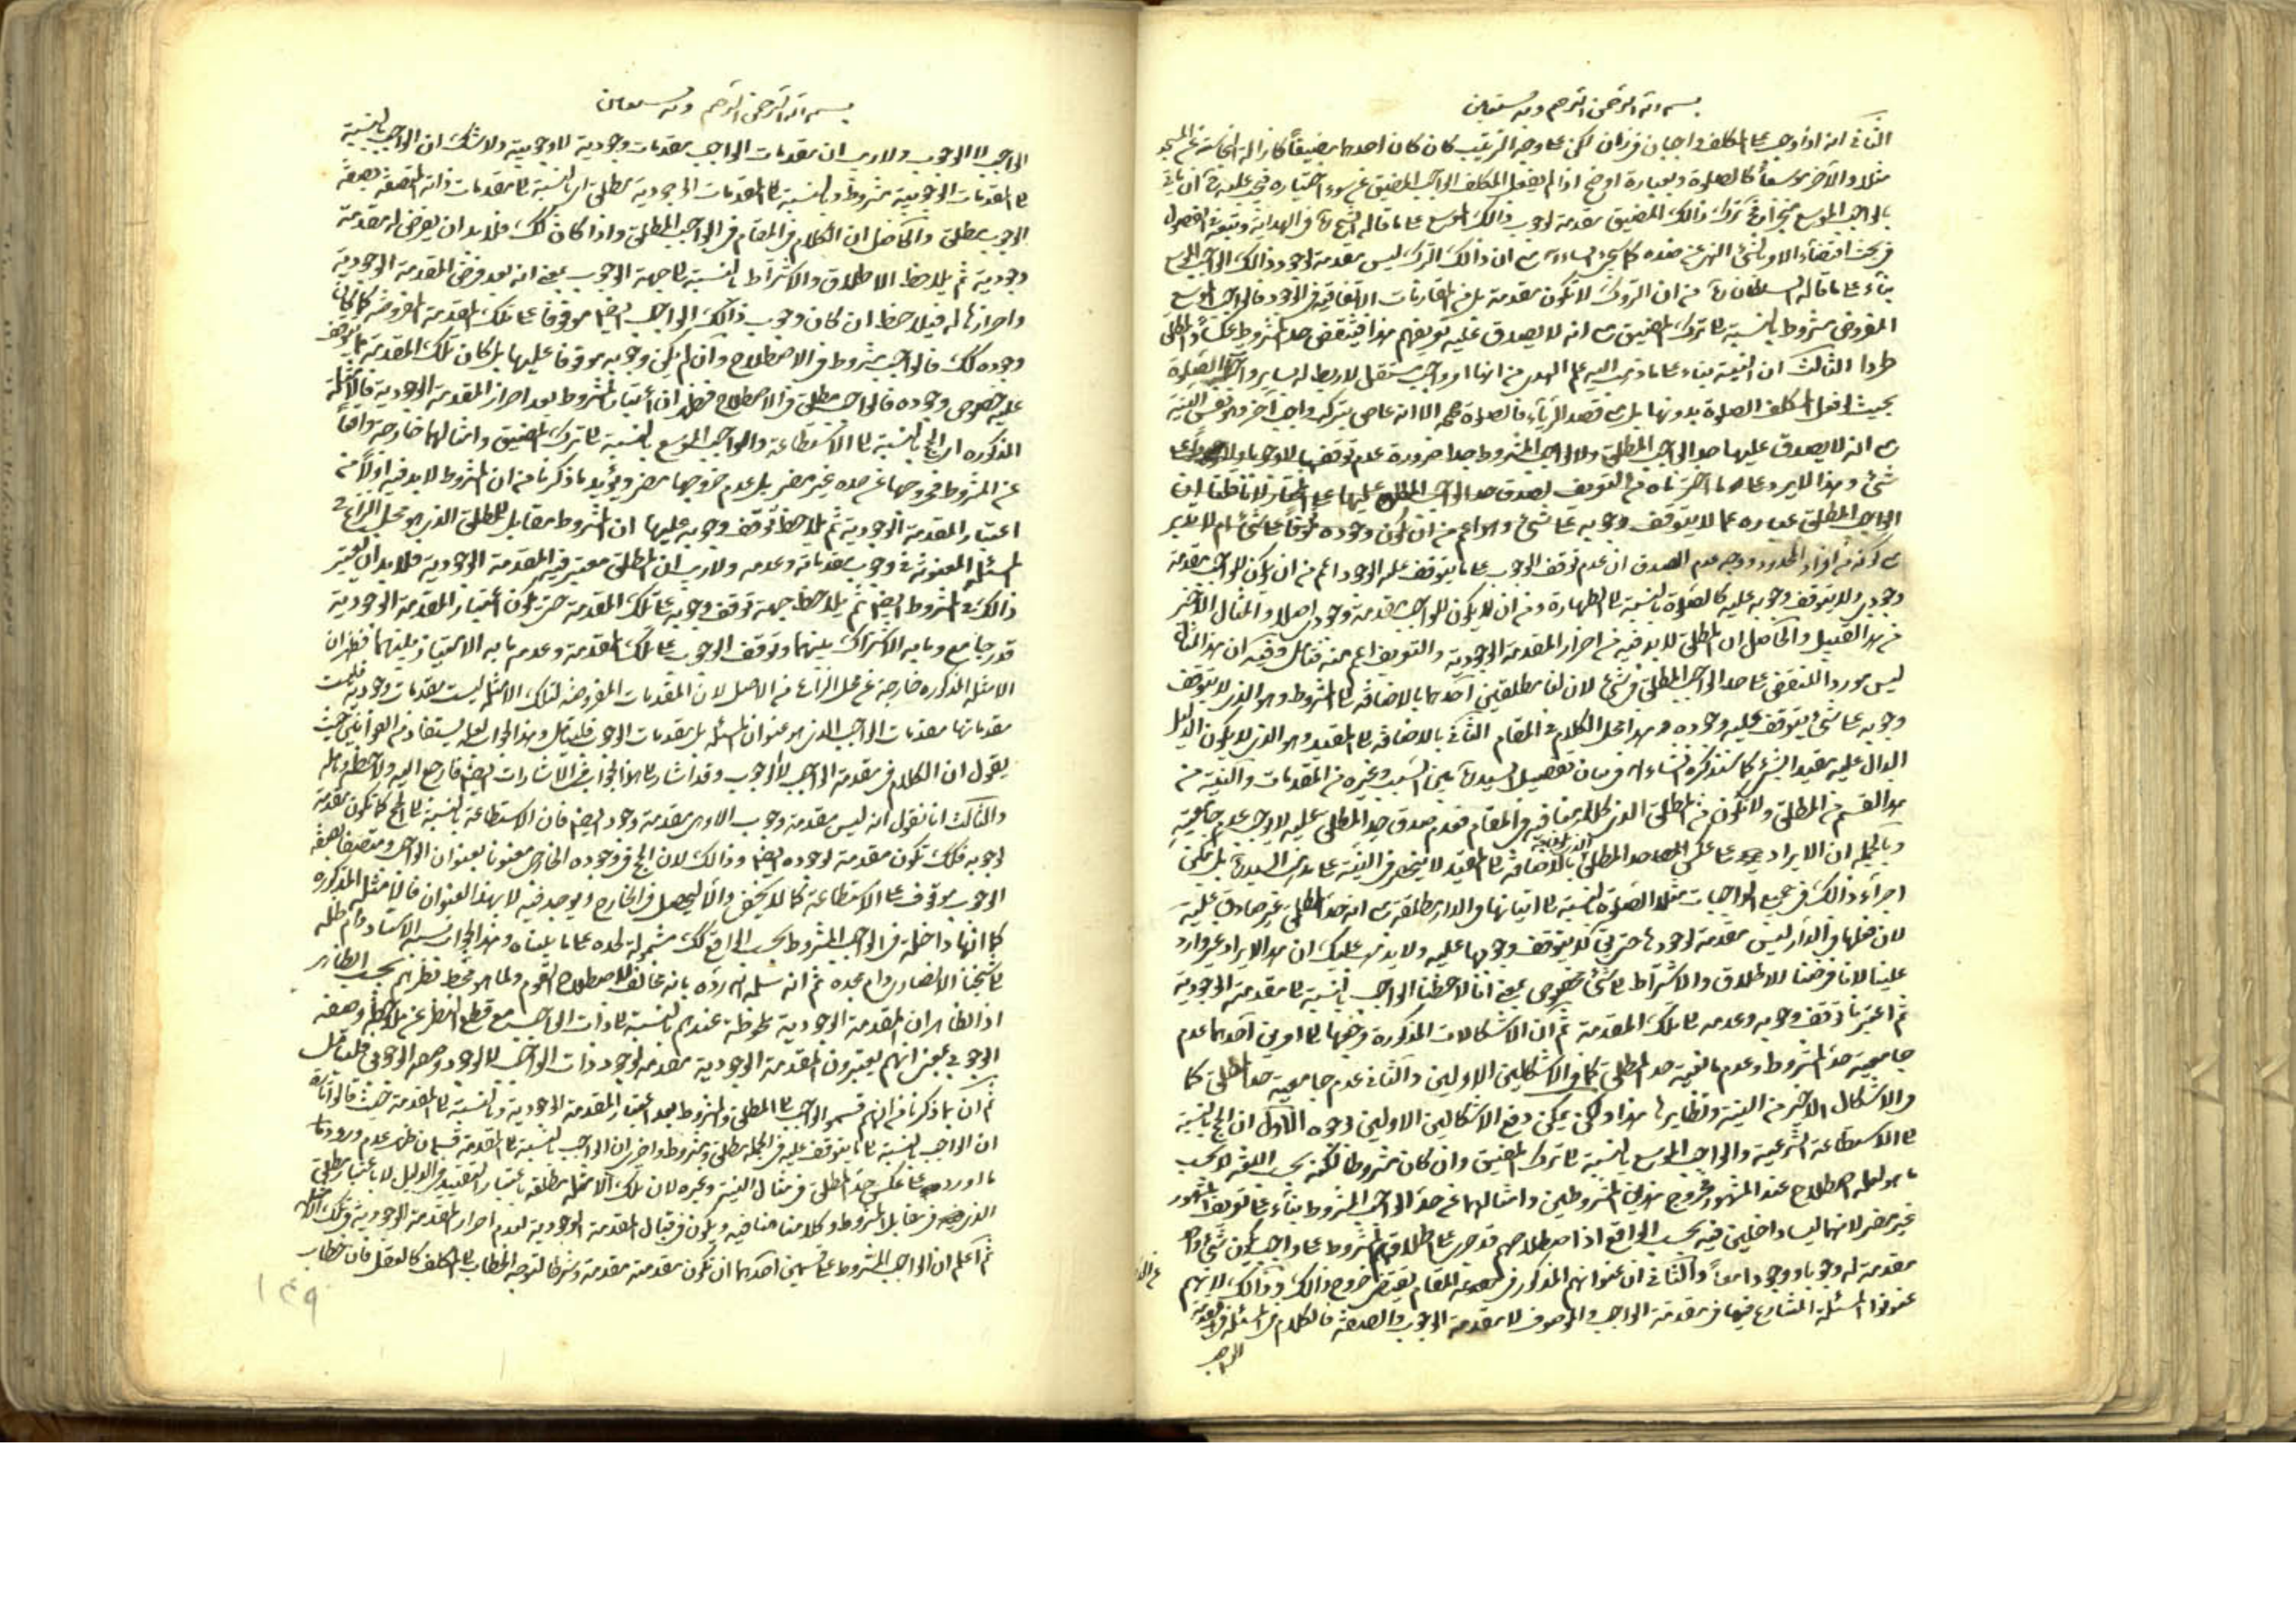 بسم الله الرحمن الرحيم وبه نستعين
الثاني انه اذا وجب على المكلف واجبان فوريان لكن على وجه الترتيب كان كان احدهما مضيقاً كازالة النجاسة عن المسجد
مثلا والآخر موسعاً كالصلوة وبعبارة اوضح اذا لم يفعل المكلف الواجب المضيق عن سوء اختياره فيجب عليه ان ياتي
بالواجب الموسع ترك ذالك المضيق مقدمة لوجوب ذالك الموسع على ما قاله الشيخ في الهداية وتبعه في الفصول
في بحث اقتضاء الامر بالشئ النهي عن ضده كما سيجئ مع ان ذالك الترك ليس مقدمة لوجود ذالك الواجب الموسع
بناء على ما قاله السلطان من ان التروك لا تكون مقدمة بل من المقارنات الاتفاقية في الوجود فالواجب الموسع
المفروض مشروط بالنسبة الى ترك المضيق مع انه لا يصدق عليه تعريفهم هذا فينتقض حد المشروط عكساً والمطلق
طردا الثالث ان النية بناء على ما ذهب اليه علم الهدى من انها امر واجب مستقل لا ربط له بساير واجبات الصلوة
بحيث لو فعل المكلف الصلوة بدونها بل مع قصد الريآء فالصلوة صحيحة الا انه عاصي بتركه واجب آخر وهو نفس النية
مع انه لا يصدق عليها حد الواجب المطلق ولا الواجب المشروط جدا ضرورة عدم توقفها لا وجوبا ولا وجودا على
شئ وهذا لا يرد على ما اخترناه من التعريف لصدق حد الواجب المطلق عليها على المختار لانا قلنا ان
الواجب المطلق عبارة عما لا يتوقف وجوبه على شئ وهو اعم من ان يكون وجوده موقوفاً على شئ ام لا
مع كونه من افراد المحدود ووجه عدم الصدق ان عدم توقف الوجوب على ما يتوقف عليه الوجود اعم من ان يكون للواجب مقدمة
وجودى ولا يتوقف وجوبه عليه كالصلوة بالنسبة الى الطهارة ومن ان لا يكون للواجب مقدمة وجودى اصلا والمثال الاخير
من هذا القبيل والحاصل ان المطلق لا بد فيه من احراز المقدمة الوجودية والتعريف اعم منه فتامل وفيه ان هذا المثال
ليس موردا للنقض على حد الواجب المطلق في شئ لان لنا مطلقين احدهما بالاضافة الى المشروط وهو الذى لا يتوقف
وجوبه على شئ يتوقف عليه وجوده وهذا محل الكلام في المقام الثاني بالاضافة الى المقيد وهو الذى لا يكون الدليل
الدال عليه مقيدا بشئ كما سنذكره انشاء الله في بيان تفصيل السيد بين السبب وغيره من المقدمات والنية من
هذا القسم من المطلق ولا تكون من المطلق الذى كلامنا فيه في المقام فعدم صدق حد المطلق عليه لا يوجب عدم جامعيته
وبالجملة ان الايراد على عكس حد المطلق بالاضافة الى المقيد لا ينحصر في النية على مذهب السيد بل يمكن
اجراء ذالك في جميع الواجبات مثلا الصلوة بالنسبة الى اتيانها في الدار مطلقة مع ان حد المطلق غير صادق عليه
لان فعلها في الدار ليس مقدمة لوجودها حتى لا يتوقف وجوبها عليه ولا يذهب عليك ان هذا الايراد غير وارد
علينا لانا فرضنا الاطلاق والاشتراط الى شئ مخصوص بمعنى انا لاحظنا الواجب بالنسبة الى مقدمته الوجودية
ثم اعتبرنا توقف وجوبه وعدمه الى تلك المقدمة ثم ان الاشكالات المذكورة مرجعها الى امرين احدهما عدم
جامعية حد المشروط وعدم مانعية حد المطلق كما في الاشكالين الاولين والثاني عدم جامعية حد المطلق كما
في الاشكال الاخير من النية ونظايرها هذا ولكن يمكن دفع الاشكالين الاولين بوجوه الاول ان الحج بالنسبة
الى الاستطاعة الشرعية والواجب الموسع بالنسبة الى ترك المضيق وان كان مشروطا لكنه بحسب اللغة لا بحسب
ما هو المصطلح عند المشهور فخروج هذين المشروطين وامثالهما عن حد الواجب المشروط بناء على تعريف المشهور
غير مضر لانهما ليسا داخلين فيه بحسب الواقع اذ اصطلاحهم قد جرى على اطلاق المشروط على واجب يكون شئ واحد
مقدمة له وجوبا ووجودا معاً والثاني ان عنوانهم المذكور في المقام يقتضى خروج ذالك وذالك لانهم
عنونوا المسئلة المتنازع فيها في مقدمة الواجب والموصوف لا مقدمة الوجوب والصفة فالكلام في المسئلة في مقدمة
الواجب
بسم الله الرحمن الرحيم وبه نستعين
الواجب لا الوجوب ولا ريب ان مقدمات الواجب مقدمات وجودية لا وجوبية ولا شك ان الواجب بالنسبة
الى المقدمات الوجوبية مشروط وبالنسبة الى المقدمات الوجودية مطلق اى بالنسبة الى مقدمات ذاته المتصفة بصفة
الوجوب مطلق والحاصل ان الكلام في المقام في الواجب المطلق واذا كان كك فلا بد ان يفرض له مقدمة
وجودية ثم يلاحظ الاطلاق والاشتراط بالنسبة الى جهة الوجوب بمعنى انه بعد فرض المقدمة الوجودية
واحرازها له فيلاحظ ان كان وجوب ذالك الواجب ايضا موقوفا على تلك المقدمة المفروضة كما كان
وجوده كك فالواجب مشروط في الاصطلاح وان لم يكن وجوبه موقوفا عليها بل كان تلك المقدمة مما يتوقف
عليه خصوص وجوده فالواجب مطلق في الاصطلاح فظهر ان اعتبار المشروط بعد احراز المقدمة الوجودية فالامثلة
المذكوره اى الحج بالنسبة الى الاستطاعة والواجب الموسع بالنسبة الى ترك المضيق وامثالهما خارجة واقعاً
عن المشروط فخروجها عن حده غير مضر بل عدم خروجها مضر ويؤيد ما ذكرنا من ان المشروط لا بد فيه اولاً من
اعتبار المقدمة الوجودية ثم يلاحظ توقف وجوبه عليها ان المشروط مقابل للمطلق الذى هو محل النزاع في
المسئلة المعنونة في وجوب مقدماته وعدمه ولا ريب ان المطلق معتبر فيه المقدمة الوجودية فلا بد ان يعتبر
ذالك في المشروط ايضا ثم يلاحظ جهة توقف وجوبه على تلك المقدمة حتى يكون اعتبار المقدمة الوجودية
قدر جامع وما به الاشتراك بينهما وتوقف الوجوب على تلك المقدمة وعدمه ما به الامتياز بينهما فظهر ان
الامثلة المذكوره خارجة عن محل النزاع من الاصل لان المقدمات المفروضة لتلك الامثلة ليست مقدمات وجودية فليست
مقدماتها مقدمات الواجب الذى هو عنوان المسئلة بل مقدمات الوجوب فليتامل وهذا الجواب لعله يستفاد من القوانين حيث
يقول ان الكلام في مقدمة الواجب لا الوجوب وقد اشار الى هذا الجواب في الاشارات ايضا فارجع اليه ولاحظ وتامل
والثالث انا نقول انه ليس مقدمة وجوب الا وهى مقدمة وجود ايضا فان الاستطاعة بالنسبة الى الحج كما تكون مقدمة
لوجوبه فكك تكون مقدمة لوجوده ايضا وذالك لان الحج في وجوده الخارجي معنونا بعنوان الواجب ومتصفا بصفة
الوجوب موقوف على الاستطاعة كما لا يخفى والا ليحصل في الخارج ويوجد فيه لا بهذا العنوان فالامثلة المذكوره
كما انها داخلة في الواجب المشروط بحسب الواقع كك مشمولة لحده على ما بيناه وهذا الجواب نسبه الاستاد دام ظله
الى شيخنا الانصارى دام مجده ثم انه سلمه الله رده بانه مخالف لاصطلاح القوم ولما هو محط نظرهم بحسب الظاهر
اذ الظاهر ان المقدمة الوجودية ملحوظة عندهم بالنسبة الى ذات الواجب مع قطع النظر عن ملاحظة وصفه
الوجوبي بمعنى انهم يعتبرون المقدمة الوجودية مقدمة لوجود ذات الواجب لا لوجود وصفه الوجوبي فليتامل
ثم ان بما ذكرنا من انهم قسموا الواجب الى المطلق والمشروط بعد اعتبار المقدمة الوجودية وبالنسبة الى المقدمة حيث قالوا
ان الواجب بالنسبة الى ما يتوقف عليه في الجملة مطلق ومشروط واخرى ان الواجب بالنسبة الى المقدمة قسمان ظهر عدم ورود ما
ما اورد على عكس حد المطلق في مثال النية وغيره لان تلك الامثلة مطلقة باعتبار التقييد في الدليل لا باعتبار مطلق
الذى في مقابل المشروط وكلامنا فيه ويكون في قبال المقدمة الوجودية لعدم احراز المقدمة الوجودية في تلك الامثلة
ثم اعلم ان الواجب المشروط على قسمين احدهما ان تكون مقدمته مقدمة وشرطا لتوجه الخطاب الى المكلف كالعقل فان خطاب
١٤٩